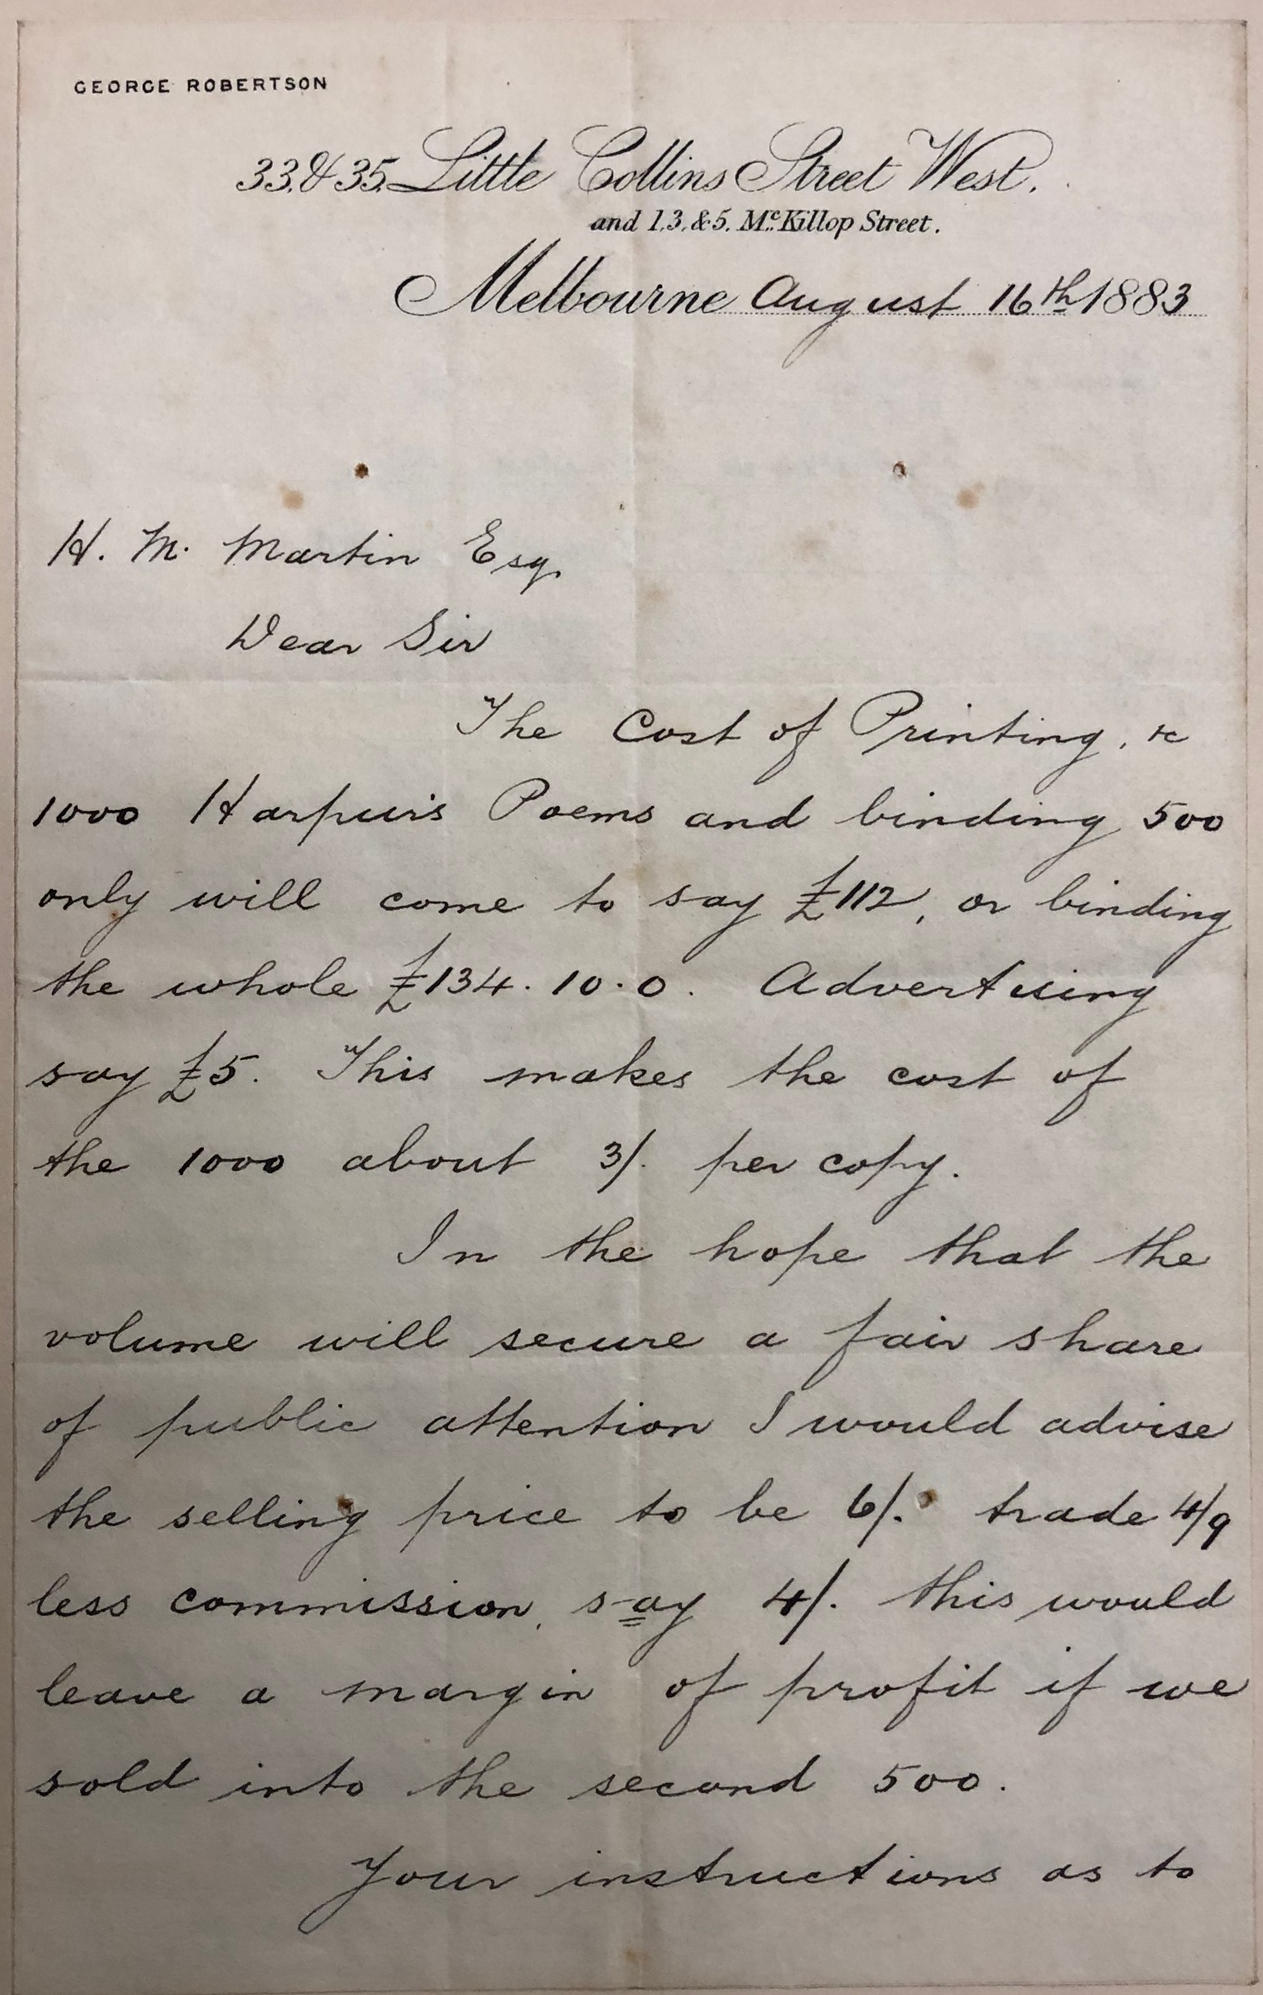 GEORGE ROBERTSON
33.& 35. Little Collins Street West.
and 1.3.&5. Mc.Killop Street.
Melbourne August 16th 1883
H. M. Martin Esq.
Dear Sir
The Cost of Printing, &c
1000 Harpur's Poems and binding 500
only will come to say £112, or binding
the whole £134.10.0. Advertising
say £5. This makes the cost of
the 1000 about 3/. per copy.
In the hope that the
volume will secure a fair share
of public attention I would advise
the selling price to be 6/. trade 4/9
less commission, say 4/. this would
leave a margin of profit if we
sold into the second 500.
Your instructions as to